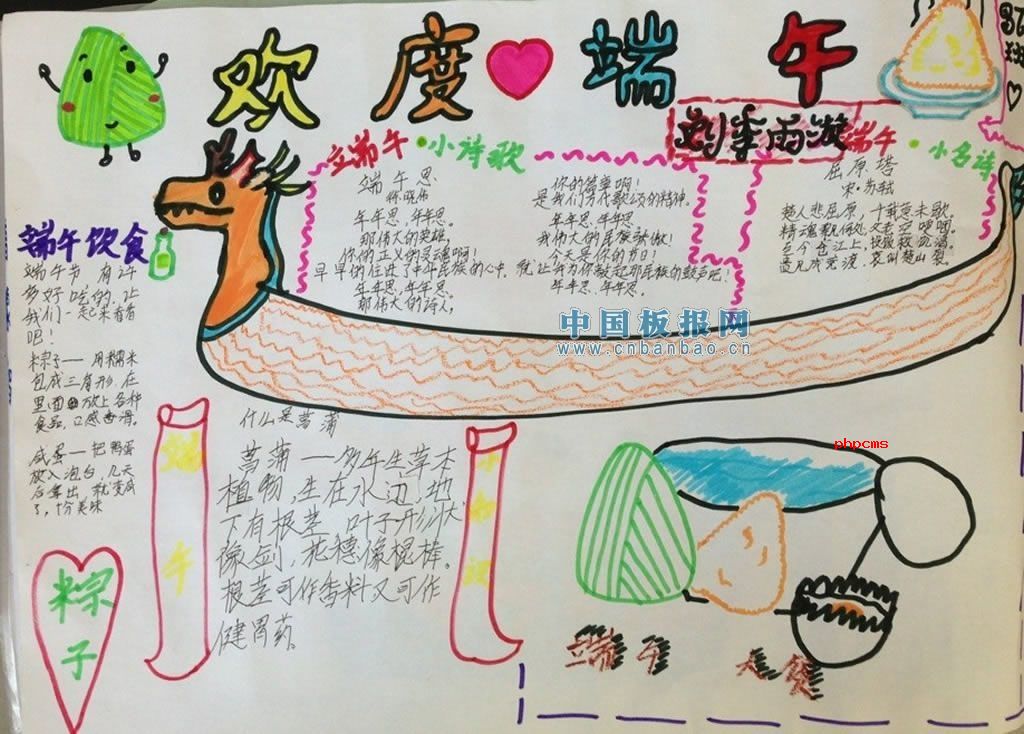 欢度端午
端午·小诗歌
端午思
年年思,年年思。
那伟大的英雄,
你的正义的灵魂啊!
早早的住进了中华民族的心中。
年年思,年年思。
那伟大的诗人,
你的简单啊!
是我们万代歌颂的精神。
年年思,年年思。
我伟大的民族骄傲!
今天是你的节日!
就让我为你敲起那民族的鼓声吧!
年年思,年年思。
端午·小名诗
屈原塔
宋·苏轼
楚人悲屈原,千载意未歇。
精魂飘何处,父老空哽咽。
至今仓江上,投饭救饥渴。
遗风成竞渡,哀叫楚山裂。
端午饮食
端午节,有许
多好吃的,让
我们一起来看看
吧!
粽子——用糯米
包成三角形,在
里面放上各种
食品,口感香滑。
咸蛋——把鸭蛋
放入泡台,几天
后拿出,就变成
了,十分美味
粽
子
端
午
什么是菖蒲
菖蒲——多年生草本
植物,生在水边,地
下有根茎,叶子形状
像剑,花穗像棍棒。
根茎可作香料又可作
健胃药。
小
知
识
端午
中国板报网
www.cnbanbao.cn
phpcms